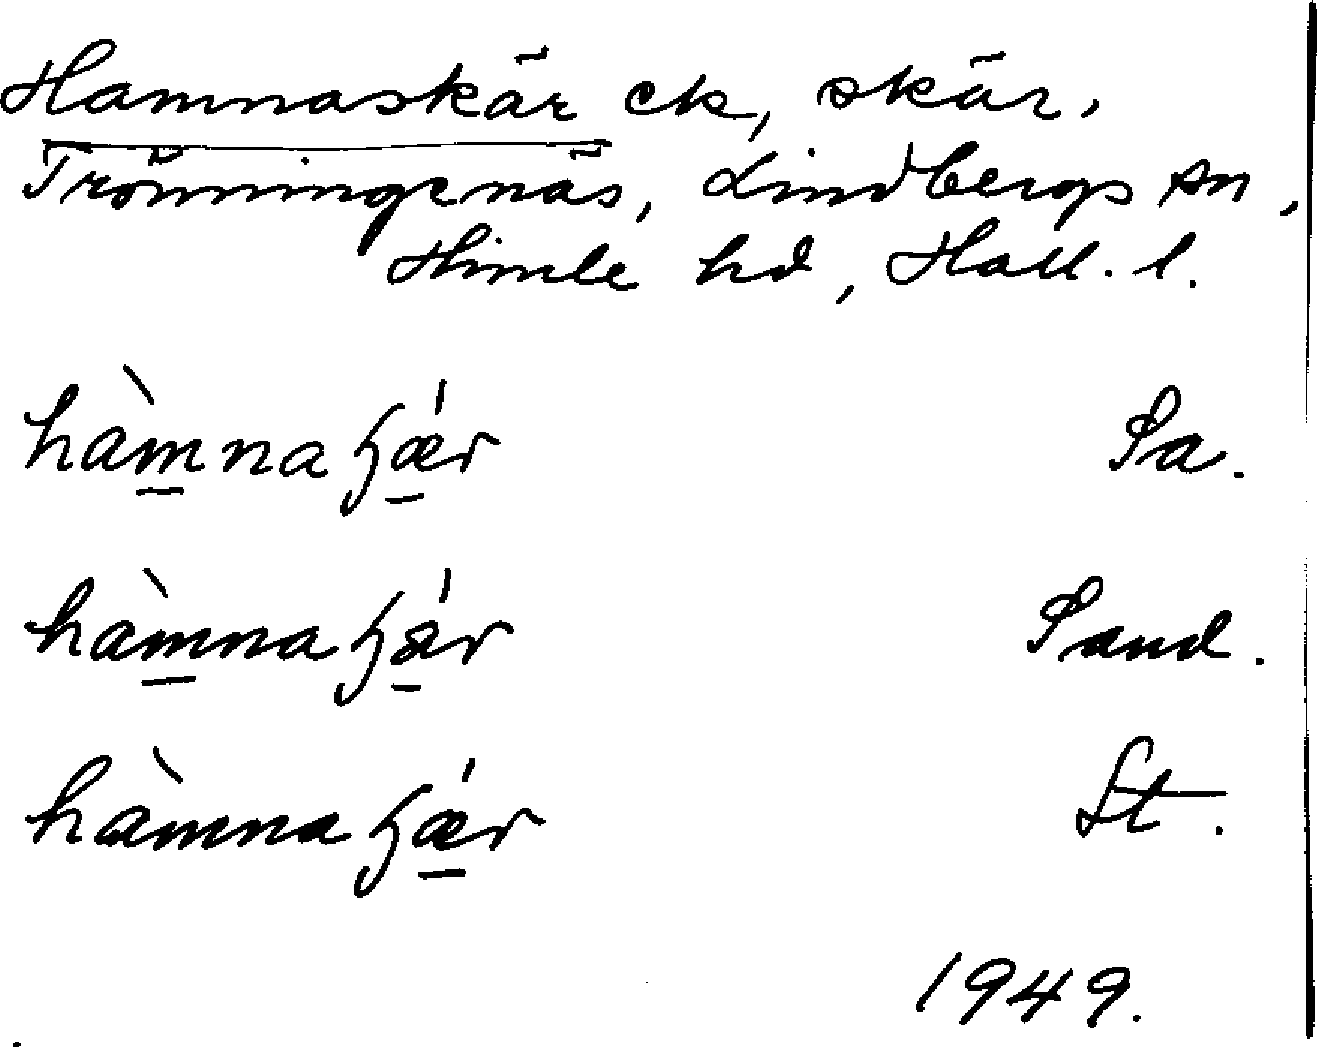 Hamnaskär ek, skär.
Trönningenäs, Lindbergs sn,
Himle hd, Hall. l.
hàmnaʃǽr Sa.
hàmnaʃár Sand.
hàmnaʃǽr St.
1949.